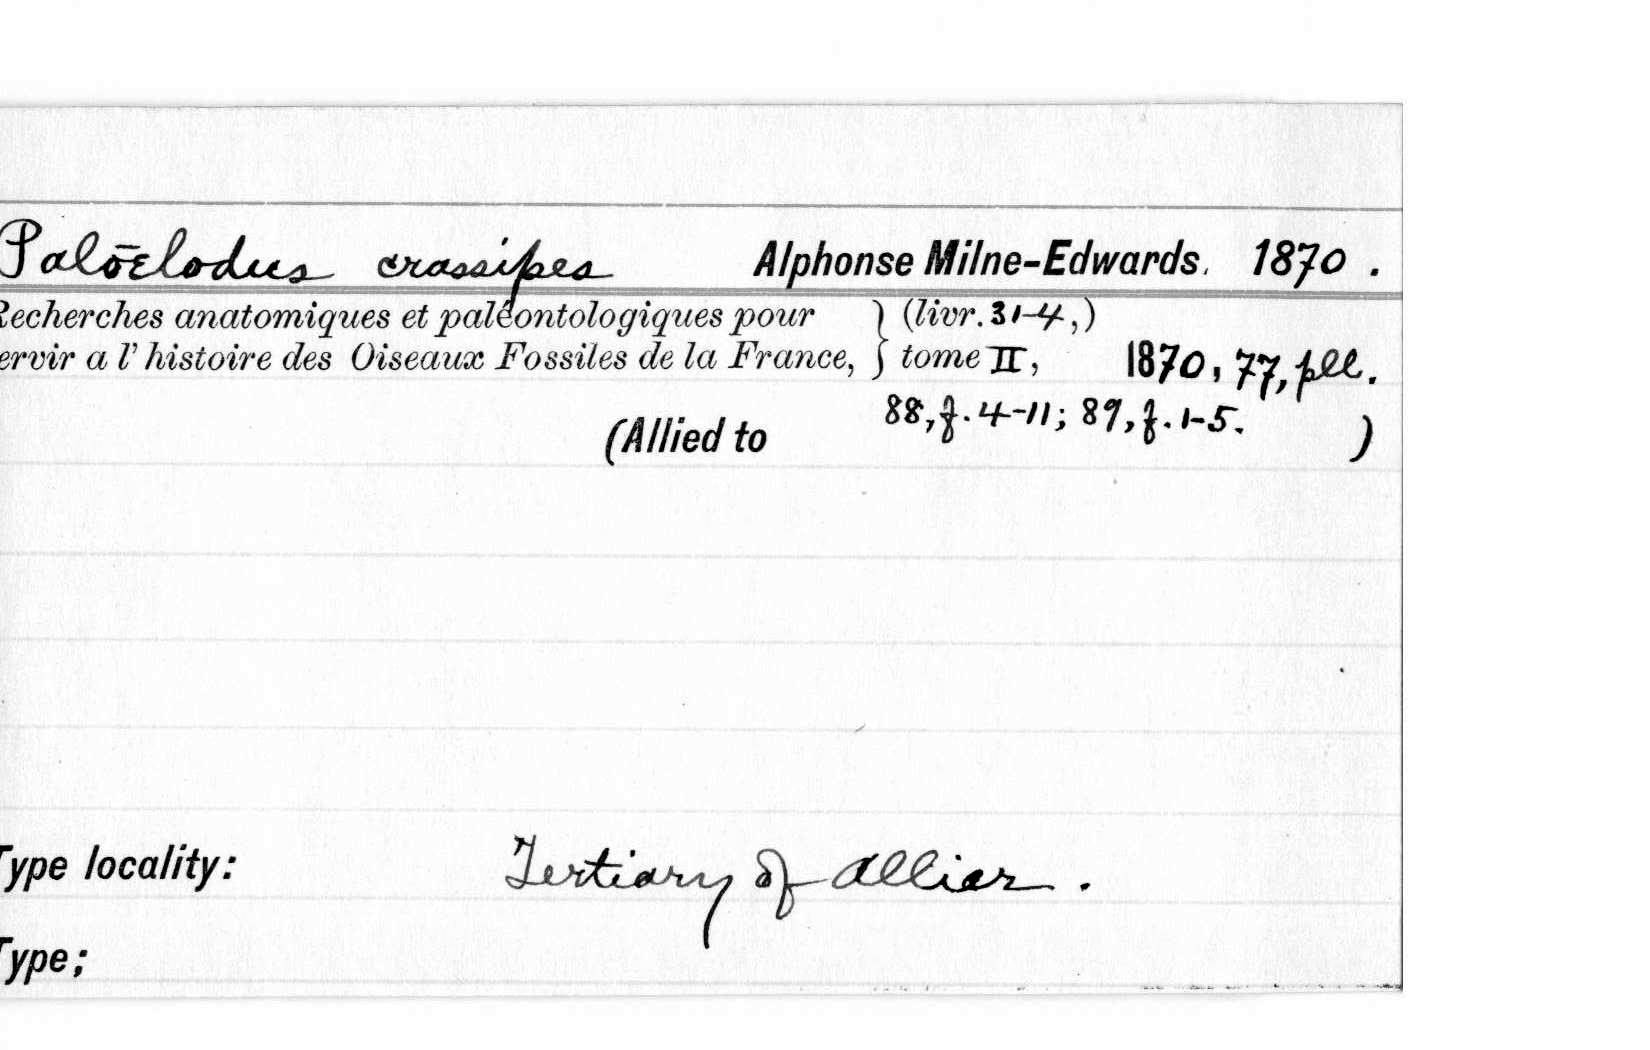 Palōelodus crassipes Alphonse Milne-Edwards. 1870.
Recherches anatomiques et paléontologiques pour } (livr. 31-4,)
ervir a l'histoire des Oiseaux Fossiles de la France, } tome II, 1870, 77, pll.
88, f. 4-11; 89, f. 1-5.
(Allied to )
Type locality: Tertiary of Allier.
Type;